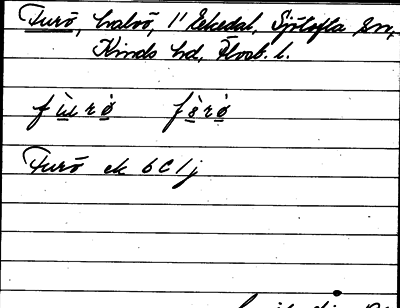 Furö, halvö, i Ekedal, Sjötofta sn,
Kinds hd, Älvsb. l.
fùrò fs̀rò
Furö ek 6C1j